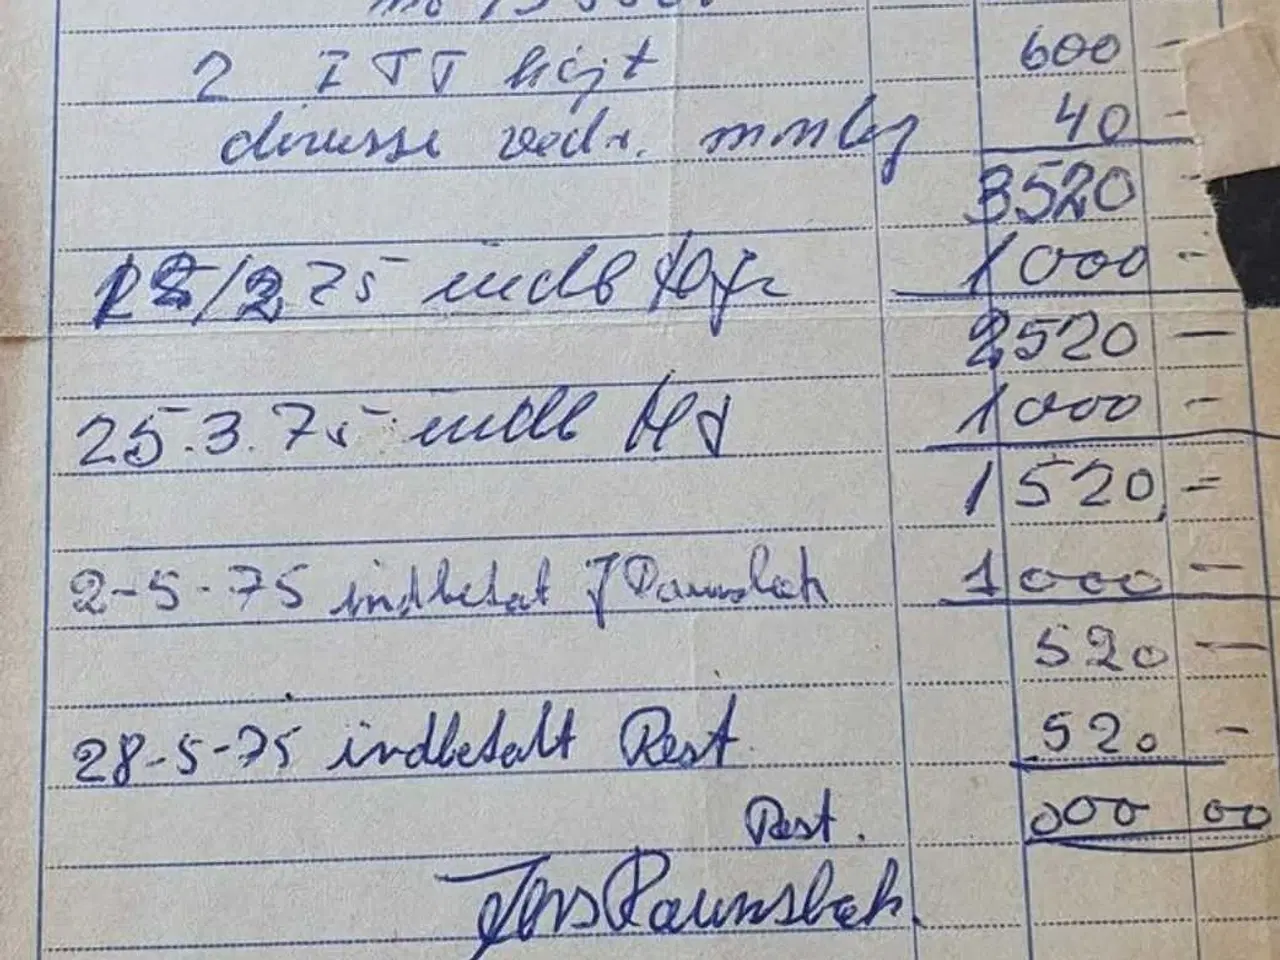 2 ITT højt 600 -
diverse vedr. 40 -
3520 -
1000 -
/2 75 indb
2520 -
25.3.75 indb 1000 -
1520,-
2-5-75 indbetat J Raunsbæk 1000 -
520 -
28-5-75 indbetalt Rest 520 -
Rest. 000 00
Jens Raunsbæk.